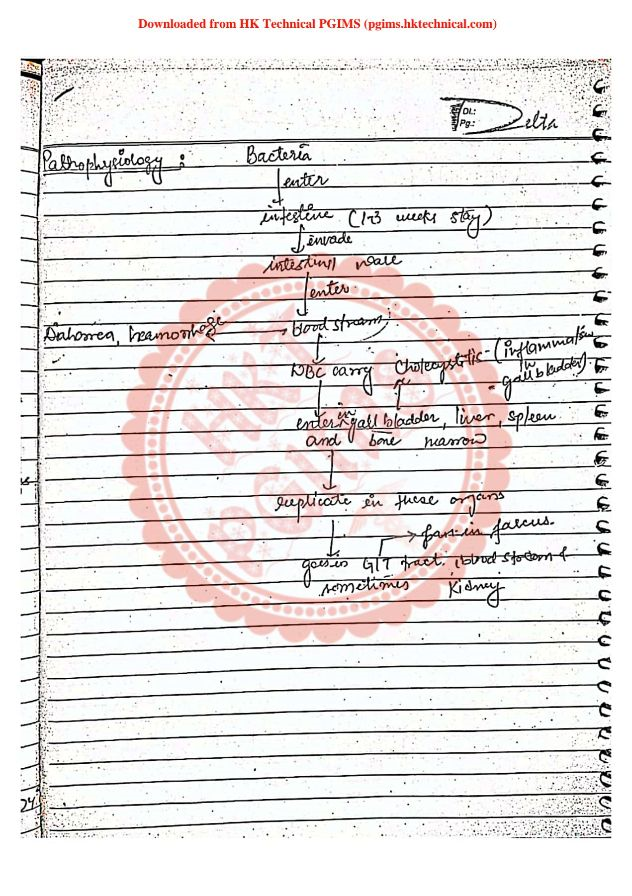 Downloaded from HK Technical PGIMS (pgims.hktechnical.com)
Dt.:
Pg.:
Delta
Pathophysiology : Bacteria
enter
intestine (1-3 weeks stay)
invade
intestinal wall
enter
Diahorrea, heamorrhage blood stream
WBC carry Cholecystitic - (inflammation
in
gall bladder)
enter in gall bladder, liver, spleen
and bone marrow
replicate in these organs
pass in faeces.
goes in GIT tract, blood stream &
sometimes kidney
HK
PGIMS
24